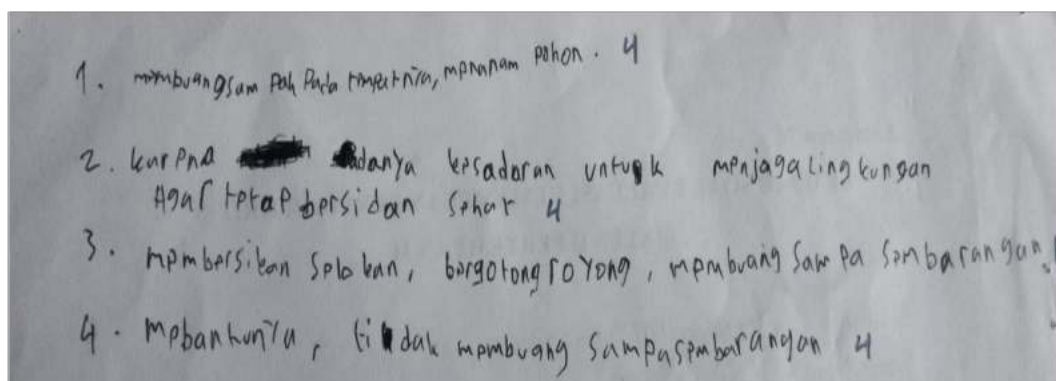 1. membuangsam pah Pada tempatnia, menanam pohon. 4
2. karena adanya kesadaran untuk menjagalingkungan
Agar tetap bersidan Sehat 4
3. membersikan Selokan, bergotongroyong, membuang Sampa Sembarangan.
4. mebantunya, tidak membuang Sampasembarangan 4